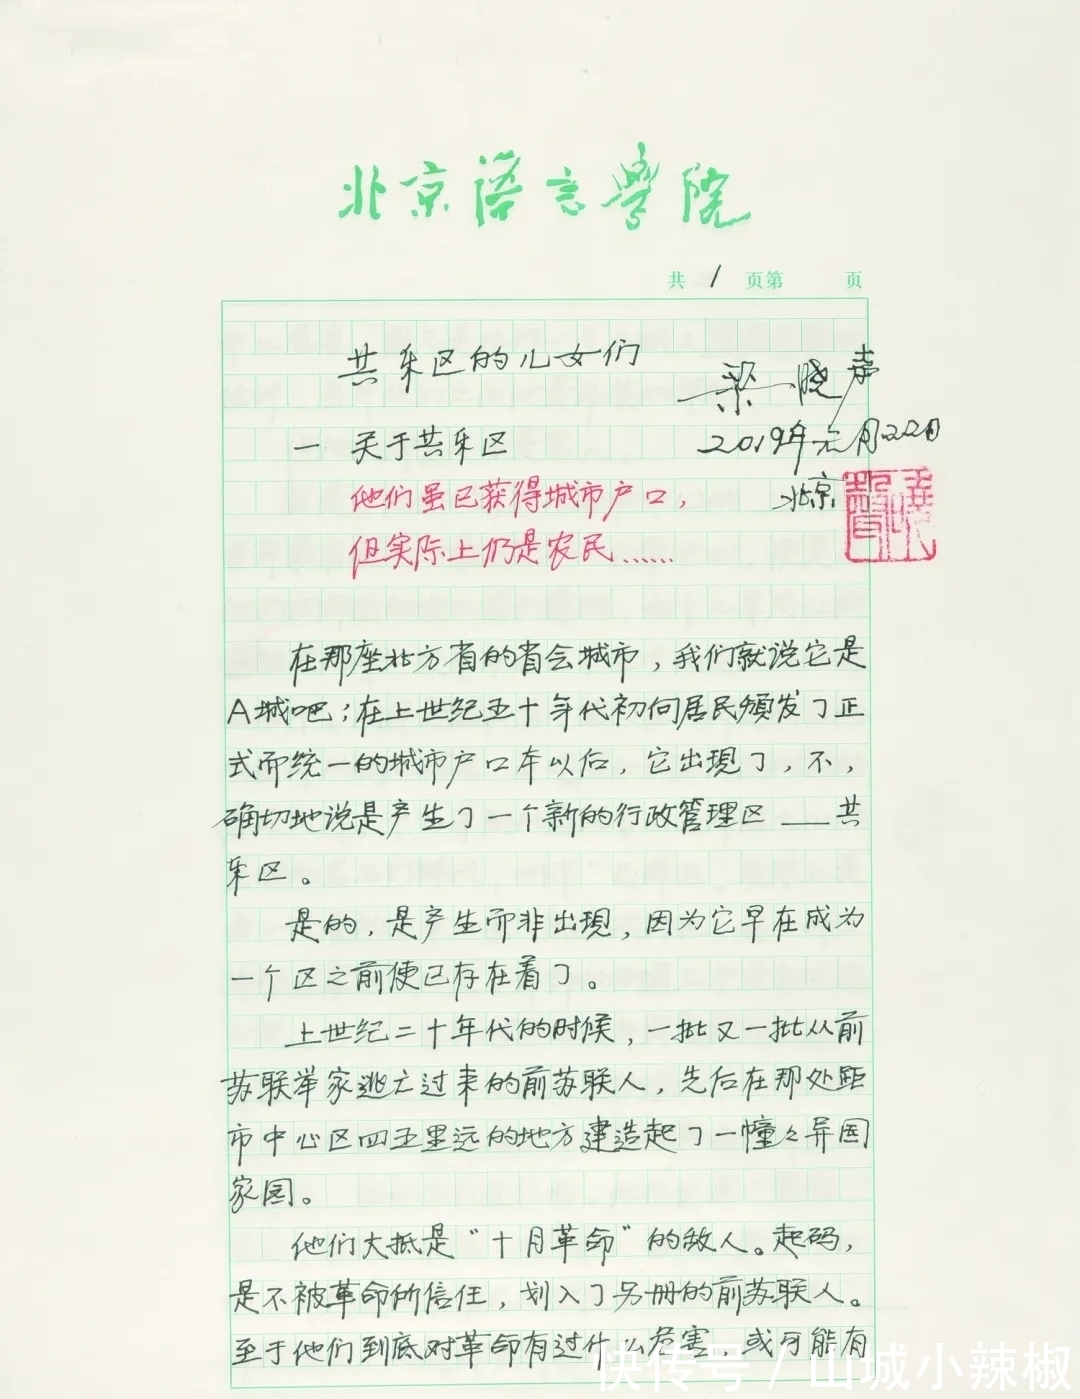 北京语言學院
共 1 页第 页
共乐区的儿女们
梁晓声
一 关于共乐区
2019年元月22日
他们虽已获得城市户口，
北京
但实际上仍是农民……
在那座北方省的省会城市，我们就说它是
A城吧；在上世纪五十年代初向居民颁发了正
式而统一的城市户口本以后，它出現了，不，
确切地说是产生了一个新的行政管理区——共
乐区。
是的，是产生而非出現，因为它早在成为
一个区之前便已存在着了。
上世纪二十年代的时候，一批又一批从前
苏联举家逃亡过来的前苏联人，先后在那处距
市中心区四五里远的地方建造起了一幢々异国
家园。
他们大抵是“十月革命”的敌人。起码，
是不被革命所信任，划入了另册的前苏联人。
至于他们到底对革命有过什么危害，或可能有
快传号 / 山城小辣椒